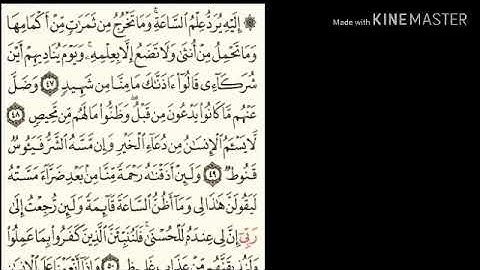 Made with KINEMASTER
۞ إِلَيْهِ يُرَدُّ عِلْمُ ٱلسَّاعَةِ ۚ وَمَا تَخْرُجُ مِن ثَمَرَٰتٍ مِّنْ أَكْمَامِهَا
وَمَا تَحْمِلُ مِنْ أُنثَىٰ وَلَا تَضَعُ إِلَّا بِعِلْمِهِۦ ۚ وَيَوْمَ يُنَادِيهِمْ أَيْنَ
شُرَكَآءِى قَالُوٓا۟ ءَاذَنَّٰكَ مَا مِنَّا مِن شَهِيدٍ ٤٧ وَضَلَّ
عَنْهُم مَّا كَانُوا۟ يَدْعُونَ مِن قَبْلُ ۖ وَظَنُّوا۟ مَا لَهُم مِّن مَّحِيصٍ ٤٨
لَّا يَسْـَٔمُ ٱلْإِنسَٰنُ مِن دُعَآءِ ٱلْخَيْرِ وَإِن مَّسَّهُ ٱلشَّرُّ فَيَـُٔوسٌ
قَنُوطٌ ٤٩ وَلَئِنْ أَذَقْنَٰهُ رَحْمَةً مِّنَّا مِنۢ بَعْدِ ضَرَّآءَ مَسَّتْهُ
لَيَقُولَنَّ هَٰذَا لِى وَمَآ أَظُنُّ ٱلسَّاعَةَ قَآئِمَةً وَلَئِن رُّجِعْتُ إِلَىٰ
رَبِّىٓ إِنَّ لِى عِندَهُۥ لَلْحُسْنَىٰ ۚ فَلَنُنَبِّئَنَّ ٱلَّذِينَ كَفَرُوا۟ بِمَا عَمِلُوا۟
وَلَنُذِيقَنَّهُم مِّنْ عَذَابٍ غَلِيظٍ ٥٠ وَإِذَآ أَنْعَمْنَا عَلَى ٱلْإِنسَٰنِ